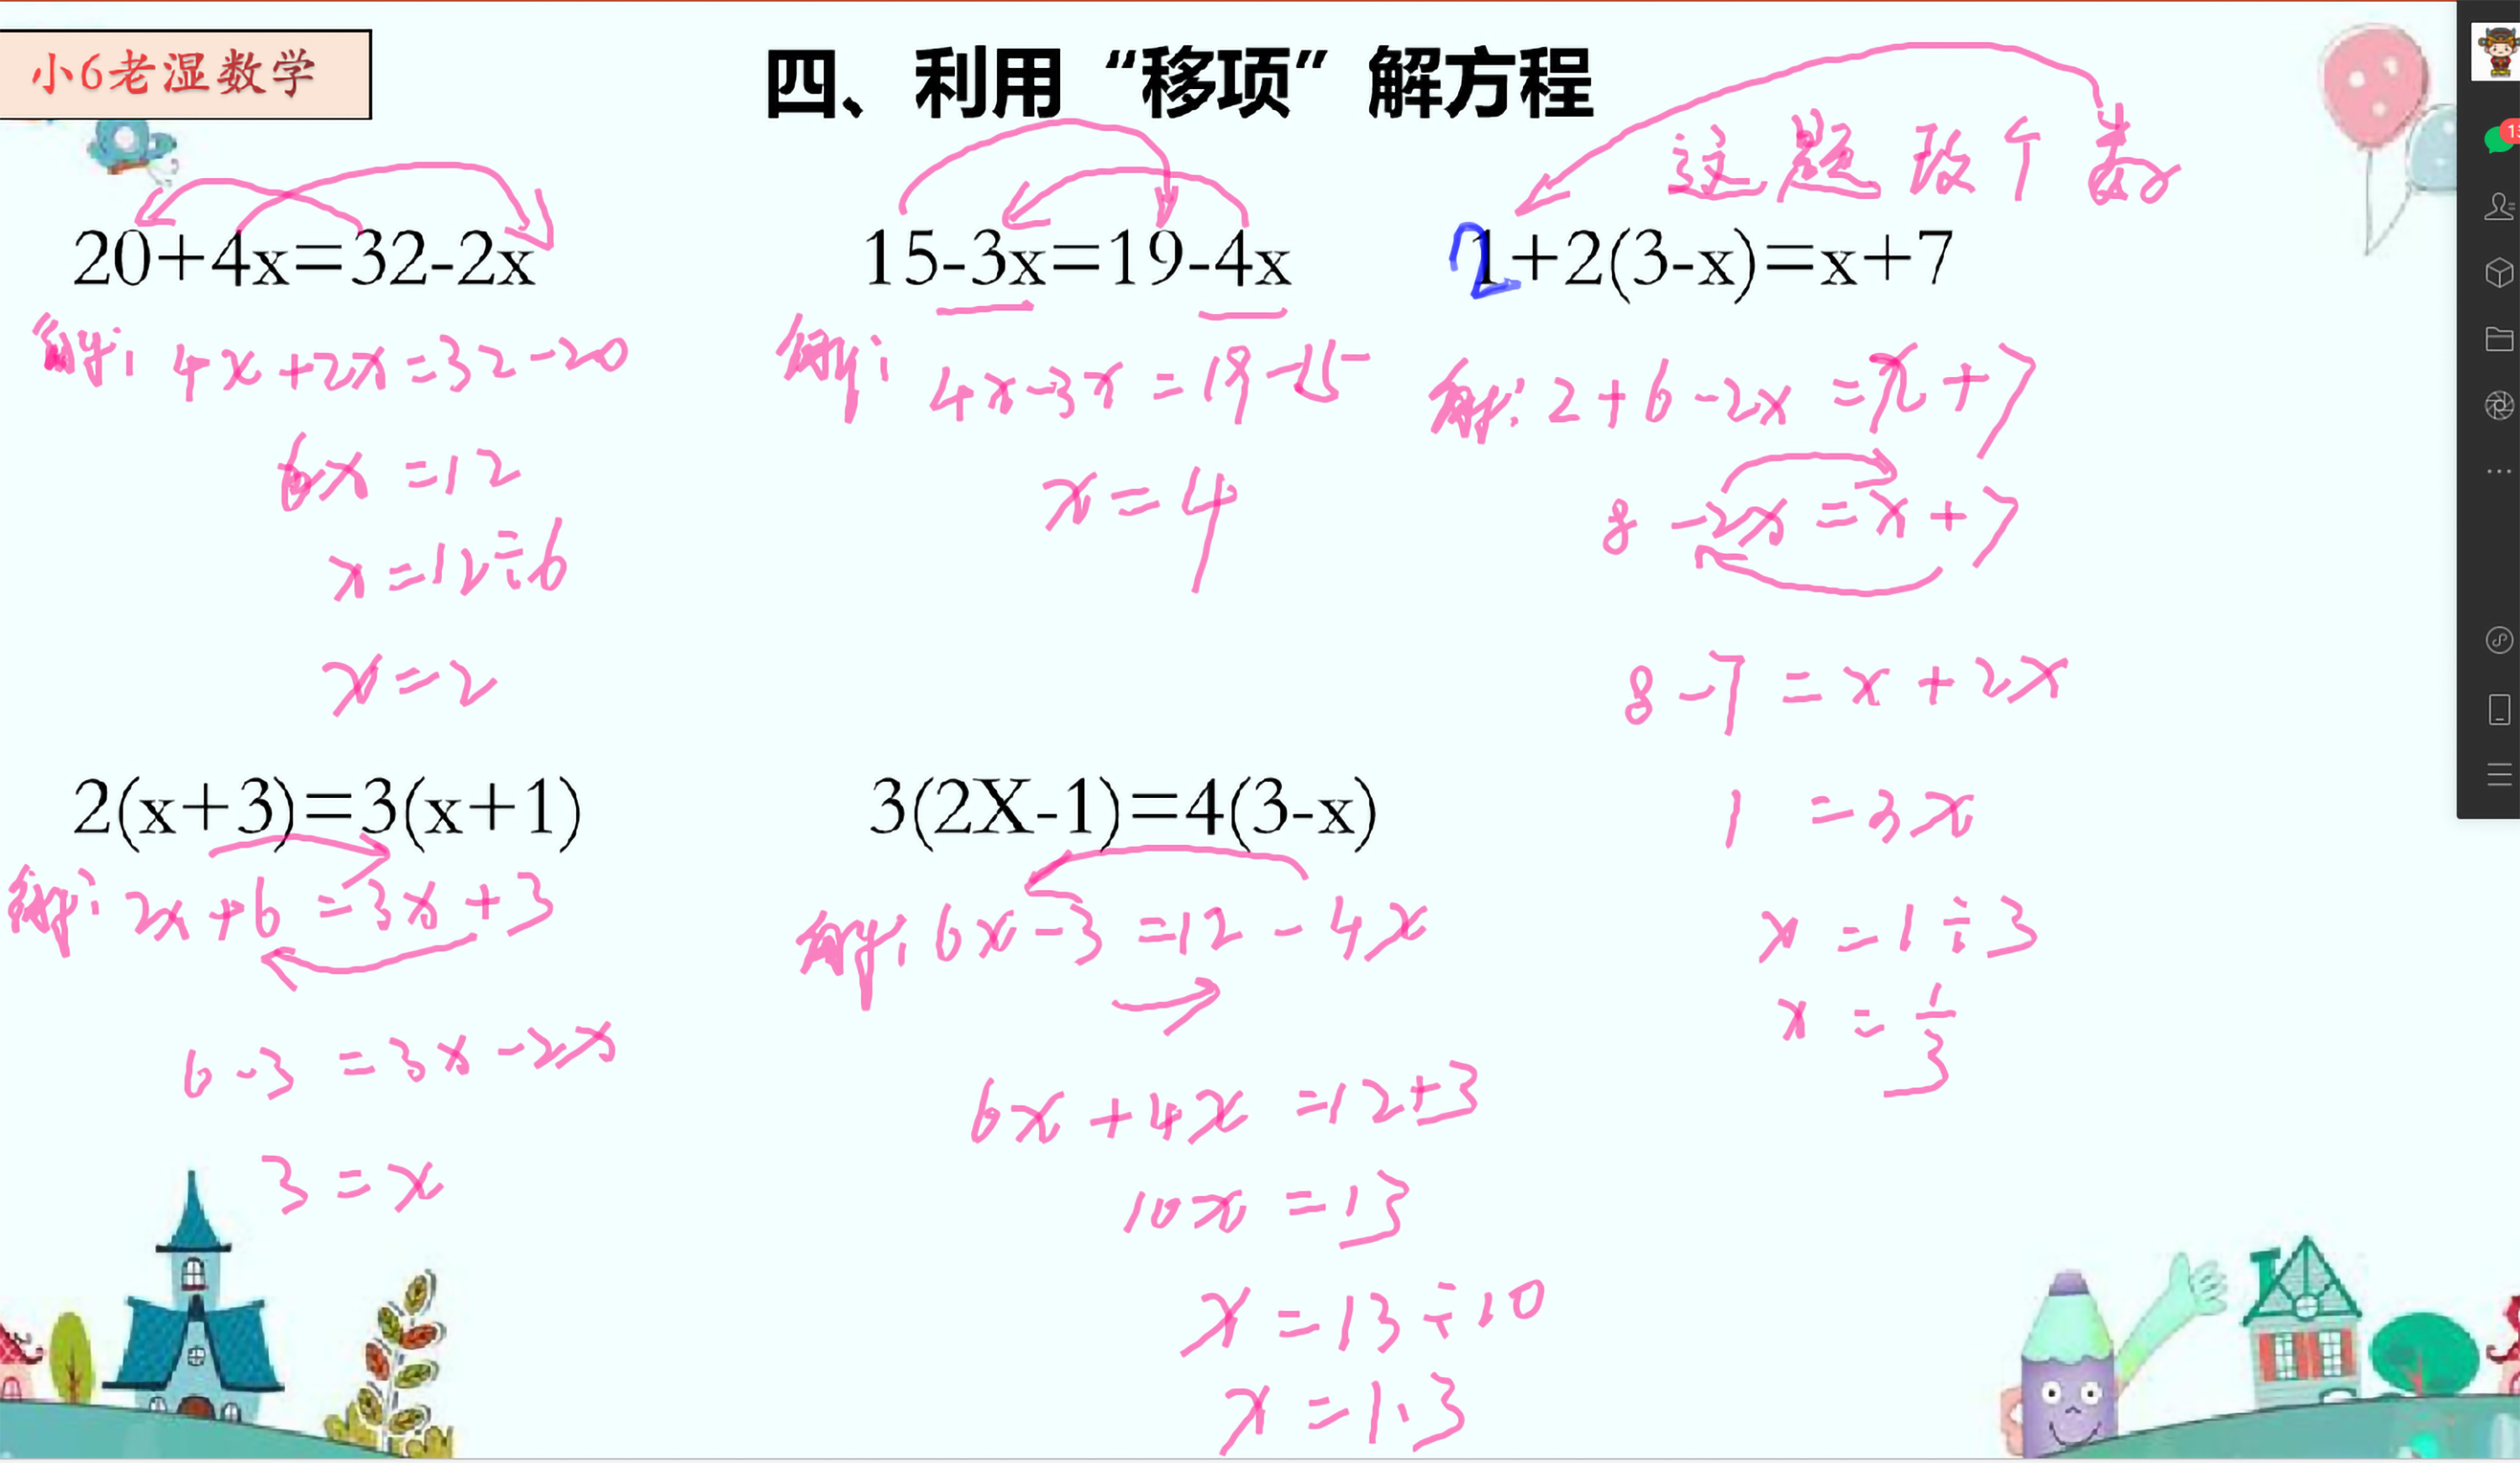 小6老湿数学
四、利用“移项”解方程
这题改个数
20+4x=32-2x
解: 4x+2x=32-20
6x=12
x=12÷6
x=2
15-3x=19-4x
解: 4x-3x=19-15
x=4
2+2(3-x)=x+7
解: 2+6-2x=x+7
8-2x=x+7
8-7=x+2x
1=3x
x=1÷3
x=1/3
2(x+3)=3(x+1)
解: 2x+6=3x+3
6-3=3x-2x
3=x
3(2X-1)=4(3-x)
解: 6x-3=12-4x
6x+4x=12+3
10x=13
x=13÷10
x=1.3
13